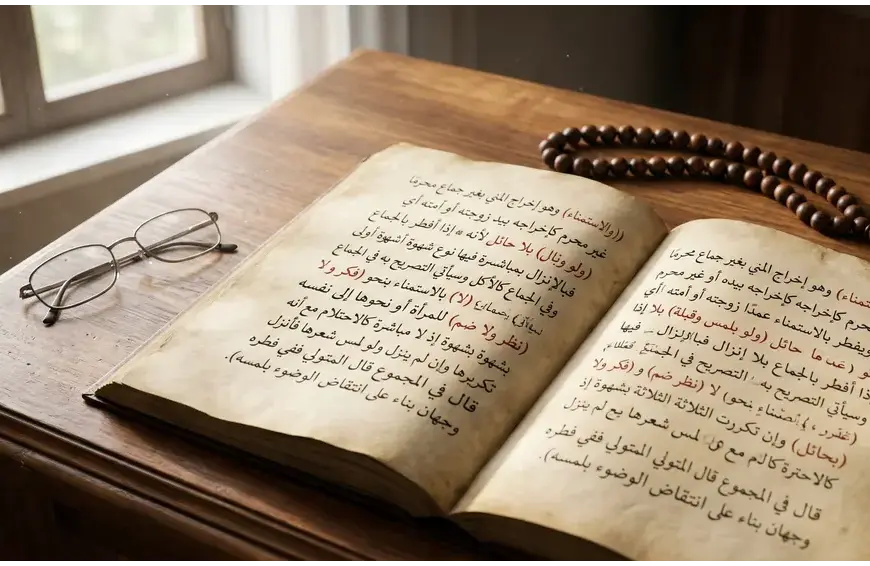 وهو إخراج المني بغير جماع محرمًا
كإخراجه بيده أو غير محرم
ويفطر بالاستمناء عمدًا زوجته أو أمته أي
ما حائل (ولو بلمس وقبلة) بلا إذا
أفطر بالجماع بلا إنزال فبالإنزال فيها
وسيأتي التصريح به التصريح في
بنحو) لا (نظر ضم) و (فكر ولا
(بحائل) وإن تكررت الثلاثة الثلاثة بشهوة إذ
مع لمس شعرها لم ينزل
قال في المجموع قال المتولي المتولي ففي فطره
وجهان بناء على انتقاض الوضوء بلمسه).
((والاستمناء) وهو إخراج المني بغير جماع محرمًا
غير محرم كإخراجه بيد زوجته أو أمته أي
(ولو ونال) بلا حائل لأنه * إذا أفطر بالجماع
فبالإنزال بمباشرة فيها نوع شهوة أشهرة أولى
وفي الجماع كالأكل وسيأتي التصريح به في الجماع
(لا) بالاستمناء بنحو (فكر ولا
(نظر ولا ضم) للمرأة أو نحوها إلى نفسه
بشهوة بشهوة إذ لا مباشرة كالاحتلام مع أنه
تكريرها وإن لم ينزل ولو لمس شعرها فأنزل
قال في المجموع قال المتولي ففي فطره
وجهان بناء على انتقاض الوضوء بلمسه).